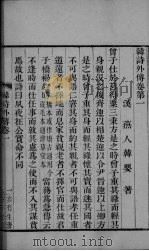 韓詩外傳卷第一
漢 燕人韓嬰著
曾子仕於莒得粟三秉方是之時曾子重其祿而輕其
身親沒之後齊迎以相楚迎以令尹晉迎以上卿方
是之時曾子重其身而輕其祿懷其寶而迷其國者
不可與語仁窘其身而約其親者不可與語孝任重
道遠者不擇地而息家貧親老者不擇官而仕故君
子橋褐趨時當務為急傳云
不逢時而仕任事而敦其慮為之使而不入其謀貧
焉故也詩曰夙夜在公實命不同
韓詩外傳卷一